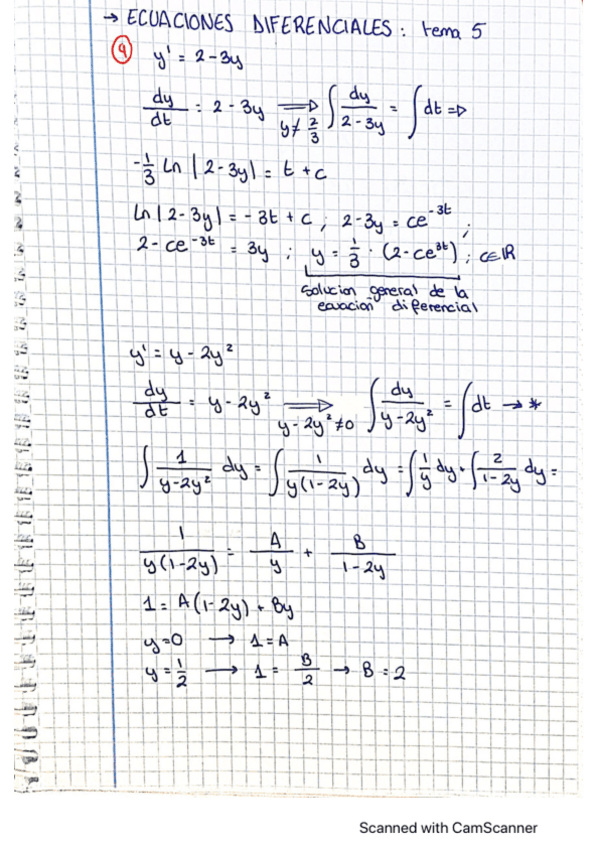 → ECUACIONES DIFERENCIALES: tema 5
9 y' = 2 - 3y
dy/dt = 2 - 3y ⟹ y ≠ 2/3 ∫ dy/(2 - 3y) = ∫ dt ⟹
-1/3 Ln |2 - 3y| = t + c
Ln |2 - 3y| = - 3t + c ; 2 - 3y = ce^-3t ;
2 - ce^-3t = 3y ; y = 1/3 · (2 - ce^3t) ; c∈ℝ
solucion general de la
ecuacion diferencial
y' = y - 2y²
dy/dt = y - 2y² ⟹ y - 2y² ≠ 0 ∫ dy/(y - 2y²) = ∫ dt → *
∫ 1/(y - 2y²) dy = ∫ 1/(y(1 - 2y)) dy = ∫ 1/y dy + ∫ 2/(1 - 2y) dy =
1/(y(1 - 2y)) = A/y + B/(1 - 2y)
1 = A(1 - 2y) + By
y = 0 → 1 = A
y = 1/2 → 1 = B/2 → B = 2
Scanned with CamScanner